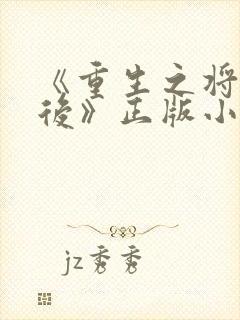 《重生之将
後》正版小
jz秀秀